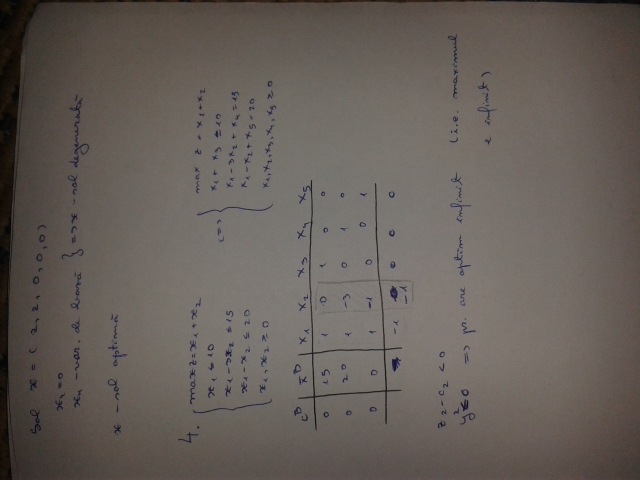 Sol x = (2, 2, 0, 0, 0)
x3 = 0
x4 - var. de bază } => x - sol degenerată
x - sol optimă
4. { max z = x1 + x2
x1 ≤ 10
x1 - 3x2 ≤ 15
x1 - x2 ≤ 20
x1, x2 ≥ 0
(=) { max z = x1 + x2
x1 + x3 = 10
x1 - 3x2 + x4 = 15
x1 - x2 + x5 = 20
x1, x2, x3, x4, x5 ≥ 0
cB x̄B x1 x2 x3 x4 x5
0 15 1 0 1 0 0
0 20 1 -3 0 1 0
0 0 1 -1 0 0 1
-1 -1 0 0 0
z2 - c2 < 0
y2 ≤ 0 => pr. are optim infinit (i.e. maximul
e infinit)